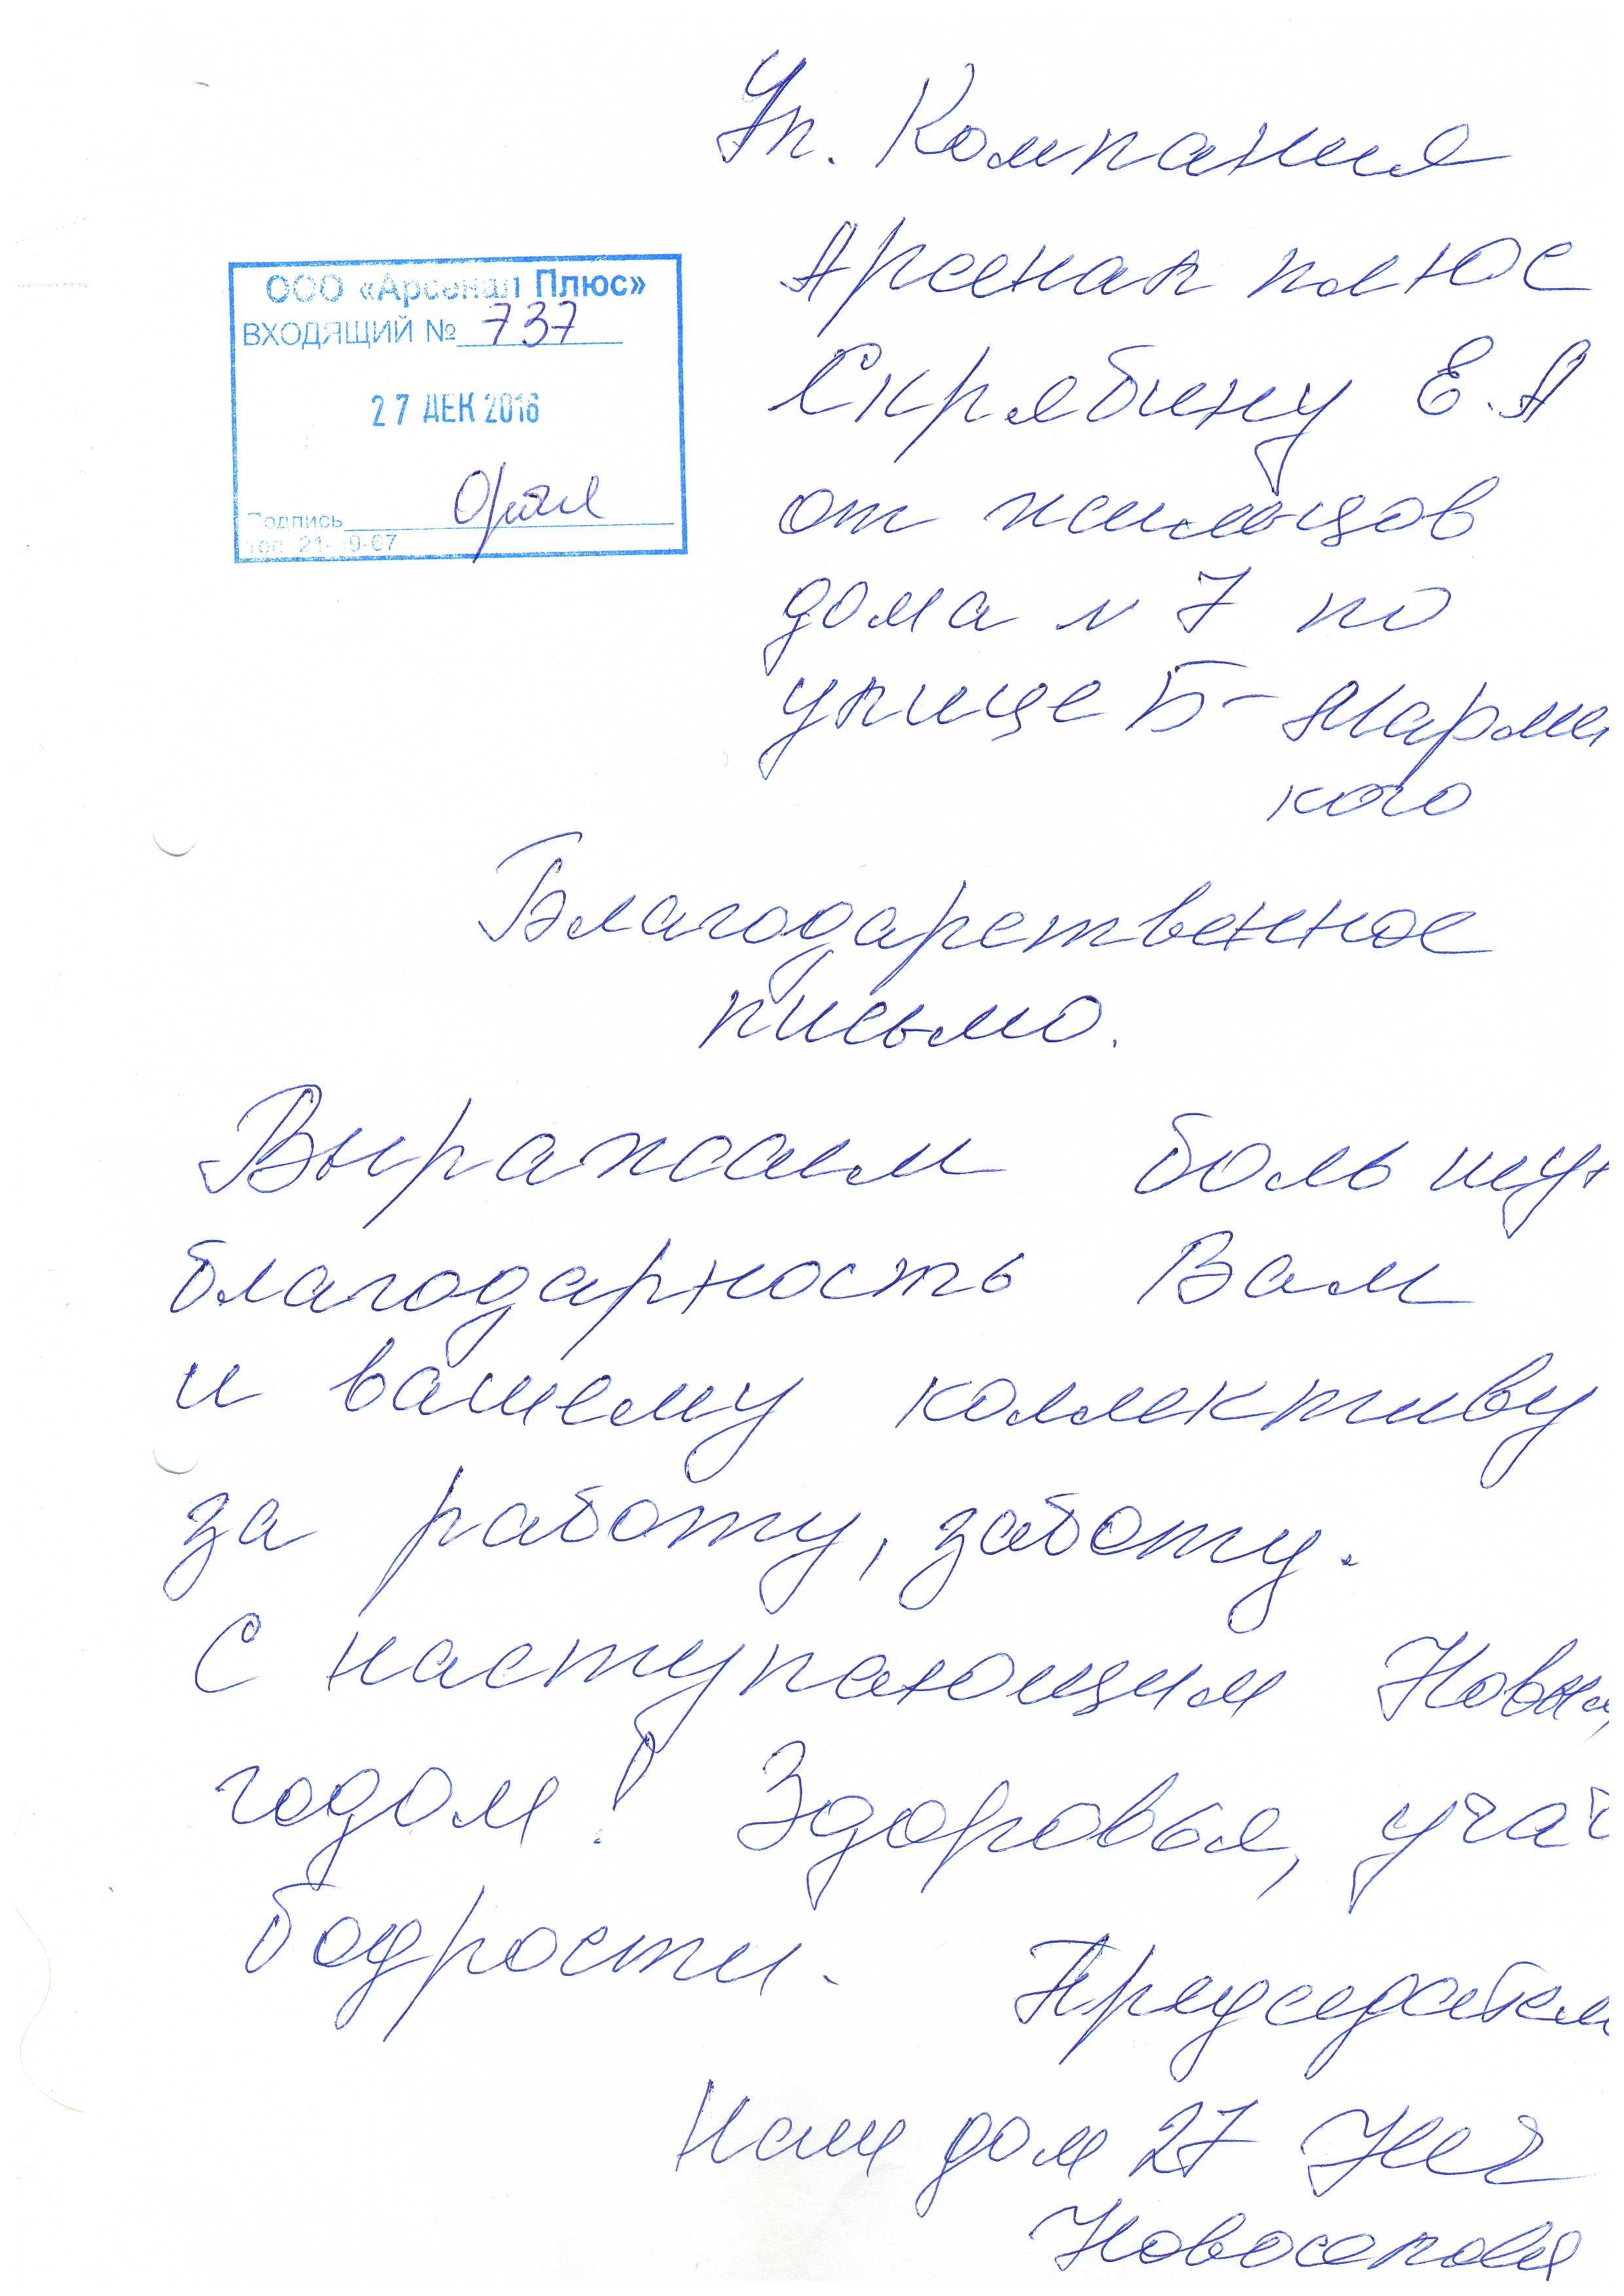 Уп. Компания
Арсенал плюс
Скрябину Е.А
от жильцов
дома N 7 по
улице Б-
кого
ООО «Арсенал Плюс»
ВХОДЯЩИЙ № 737
27 ДЕК 2016
Подпись
тел. 21- 9-67
Благодарственное
письмо.
Выражаем большую
благодарность Вам
и вашему коллективу
за работу, заботу.
С наступающим Новым
годом! Здоровья, удачи
бодрости. Председатель
Наш дом 27
Новоселова